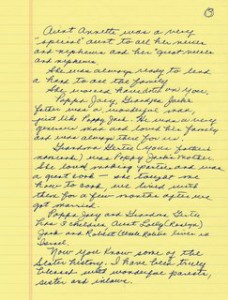 3
Aunt Annette was a very
"special" aunt to all her nieces
and nephews and her great nieces
and nephews.
She was always ready to lend
a hand to all the family.
She worked hard on you.
Poppa Joey, Grandpa Jack's
father was a wonderful man,
just like Poppy Jack. He was a very
generous man and loved his family
and was always there for us.
Grandma Gertie (you father's
namesake) was Poppy Jack's mother.
She loved making parties and was
a great cook - she taught me
how to cook, we lived with
them for a few months after we
got married.
Poppa Joey and Grandma Gertie
had 3 children, Aunt Lolly
Jack and Robert (Uncle Robbie lives in
Israel.
Now you know some of the
Sister history. I have been truly
blessed with wonderful parents,
sister and inlaws.